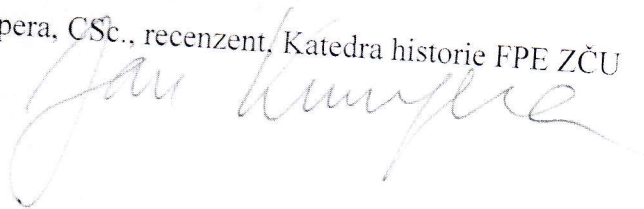 pera, CSc., recenzent, Katedra historie FPE ZČU
Jan Kumpera